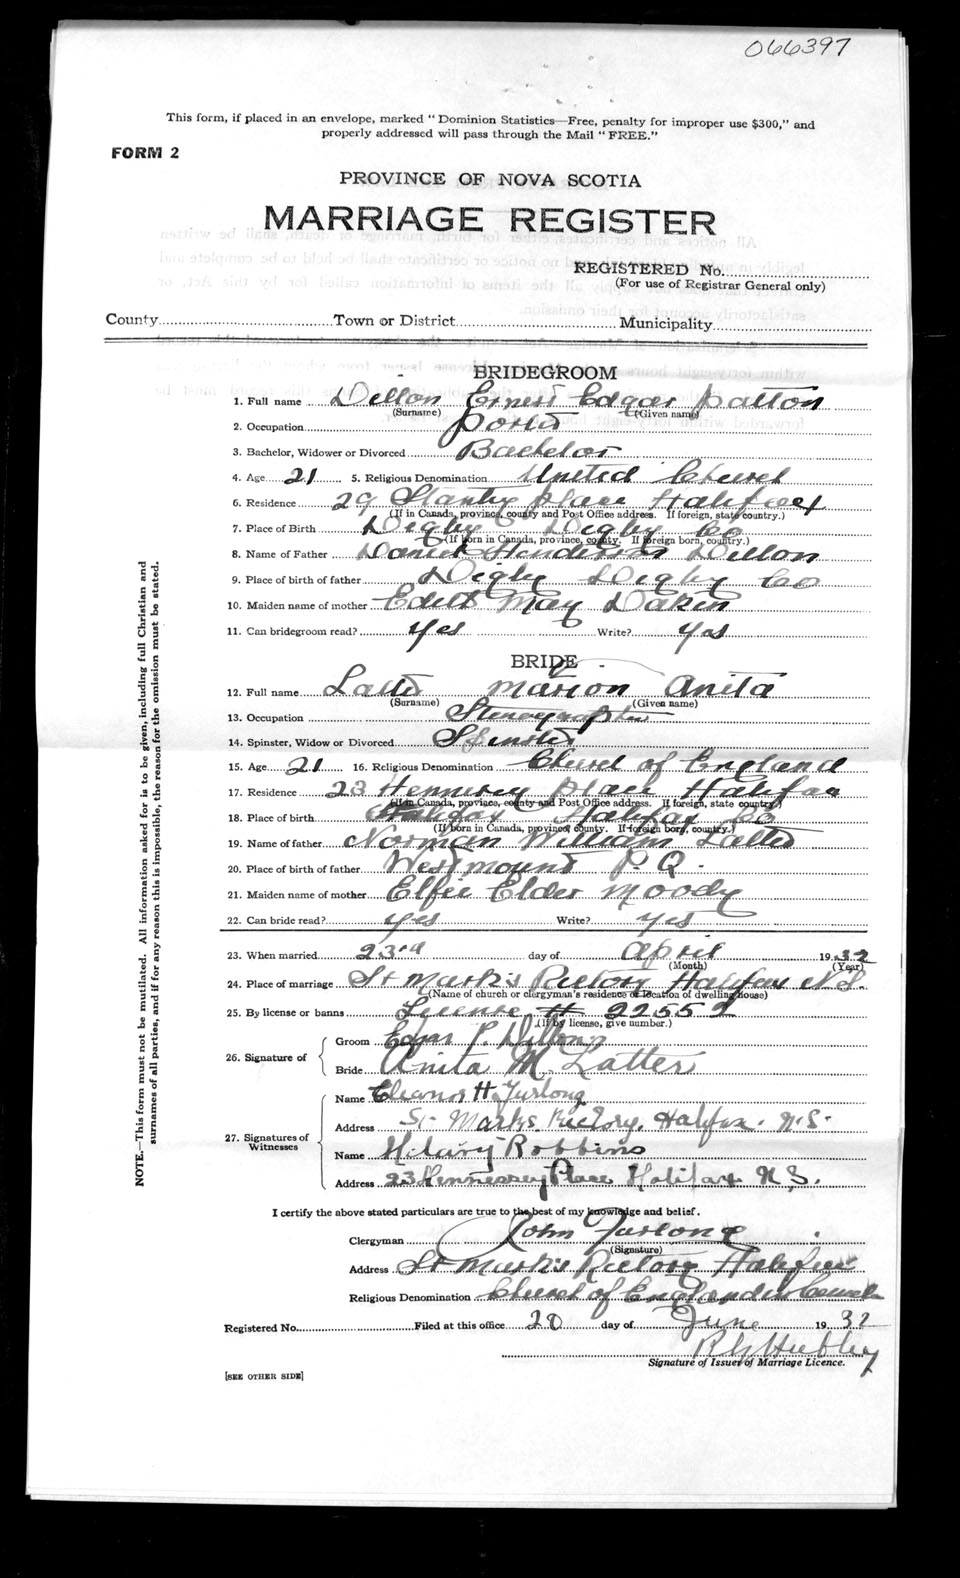 066397
This form, if placed in an envelope, marked "Dominion Statistics—Free, penalty for improper use $300," and
properly addressed will pass through the Mail "FREE."
FORM 2
PROVINCE OF NOVA SCOTIA
MARRIAGE REGISTER
REGISTERED No.
(For use of Registrar General only)
County Town or District Municipality
BRIDEGROOM
1. Full name Dillon Ernest Edgar Patton
(Surname) (Given name)
2. Occupation Porter
3. Bachelor, Widower or Divorced Bachelor
4. Age 21 5. Religious Denomination United Church
6. Residence 29 Stanley Place Halifax
(If in Canada, province, county and Post Office address. If foreign, state country.)
7. Place of Birth Digby Digby Co
(If born in Canada, province, county. If foreign born, country.)
8. Name of Father Daniel Henderson Dillon
9. Place of birth of father Digby Digby Co
10. Maiden name of mother Edith May Dakin
11. Can bridegroom read? Yes Write? Yes
BRIDE
12. Full name Latter Marion Anita
(Surname) (Given name)
13. Occupation Stenographer
14. Spinster, Widow or Divorced Spinster
15. Age 21 16. Religious Denomination Church of England
17. Residence 23 Hennesey Place Halifax
(If in Canada, province, county and Post Office address. If foreign, state country.)
18. Place of birth Halifax Halifax Co
(If born in Canada, province, county. If foreign born, country.)
19. Name of father Norman William Latter
20. Place of birth of father Westmount P.Q.
21. Maiden name of mother Elfie Elder Moody
22. Can bride read? Yes Write? Yes
23. When married 23rd day of April 1932
(Month) (Year)
24. Place of marriage St Mark's Rectory Halifax N.S.
(Name of church or clergyman's residence or location of dwelling house)
25. By license or banns License # 22552
(If by license, give number.)
26. Signature of Groom Edgar P. Dillon
Bride Anita M. Latter
27. Signatures of Witnesses Name Eleanor H. Furlong
Address St. Marks Rectory, Halifax. N.S.
Name Hilary Robbins
Address 23 Hennessey Place Halifax N.S.
I certify the above stated particulars are true to the best of my knowledge and belief.
Clergyman John Furlong
(Signature)
Address St Mark's Rectory Halifax
Religious Denomination Church of England in Canada
Registered No. Filed at this office 20 day of June 1932
Signature of Issuer of Marriage Licence.
[SEE OTHER SIDE]
NOTE.—This form must not be mutilated. All information asked for is to be given, including full Christian and
surnames of all parties, and if for any reason this is impossible, the reason for the omission must be stated.